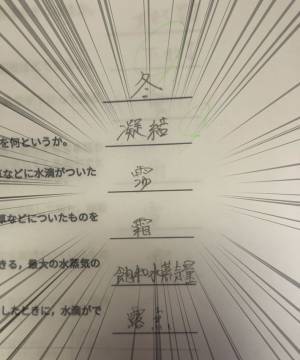 冬
凝結
を何というか。
草などに水滴がついた
露
霜
草などについたものを
きる，最大の水蒸気の
飽和水蒸気量
したときに，水滴がで
露点